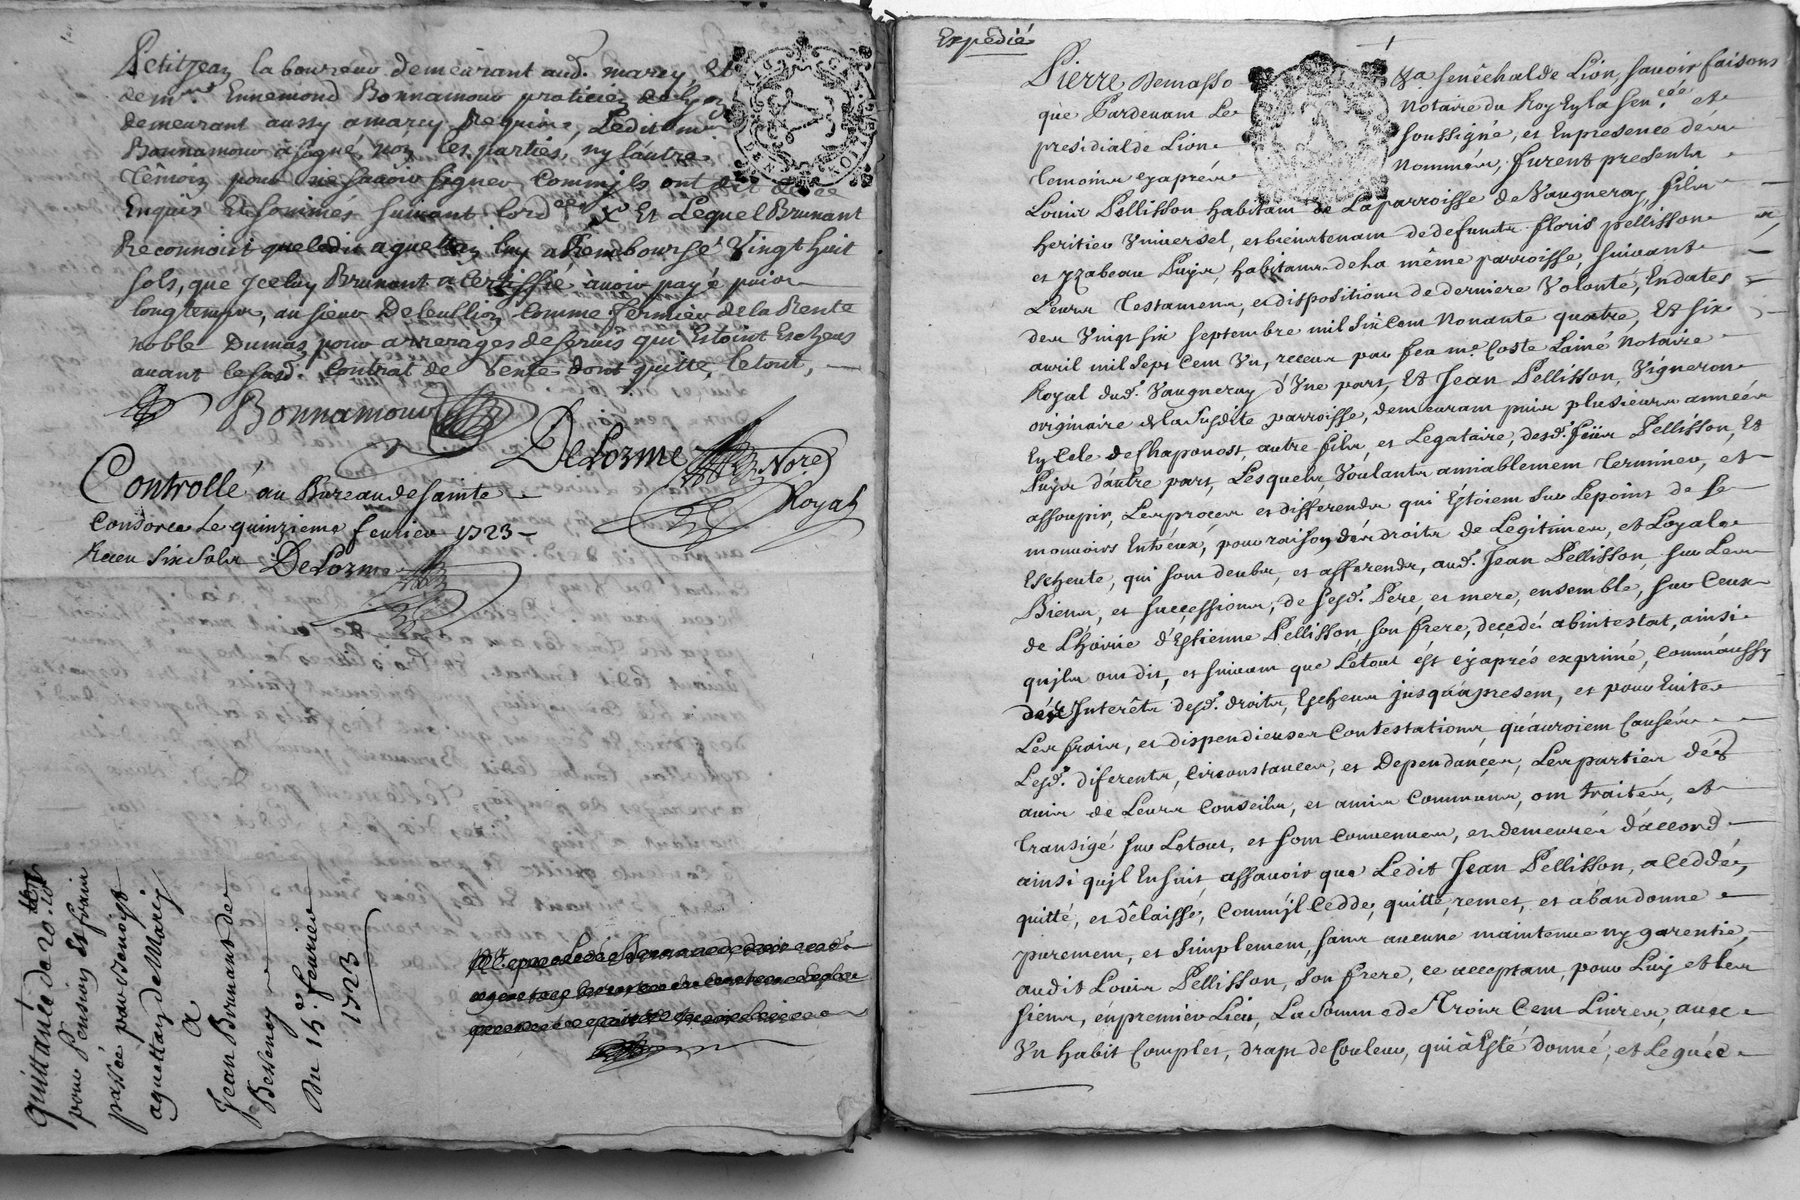 Petitjean laboureur demeurant aud. marcy, Et
de mre Ennemond Bonnamour praticien de lyon
demeurant aussy a marcy Requis, Ledit mre
Bonnamour a signé, non les parties, ny lautre
temoin pour ne scavoir signer Commils ont dit de ce
Enquis Et sommés suivant lord ce x Et Lequel Brunant
Reconnoist queledit aguettan luy a Rembourcé Vingt huit
sols, que Jceluy Brunant a Certiffié avoir payé puis
long temps, au sieur Comme fermier de la Rente
noble Dumas, pour arrerages de servis qui Estoint Escheus
avant le susd. Contrat de Vente dont quitte, le tout,
Bonnamour
DeLorme Nore
Royal
Controllé au Bureau de sainte
Consorce Le quinzieme feuvrier 1723
Receu six sols DeLorme
quittance de 20.
pour Pension Et servis
passée par Benoist
aguettan de Marcy
A
Jean Brunant de
Bessenay
Du 15e. feuvrier
1723
Expedié
Pierre Demasso sénéchal de Lion, savoir faisons
que Pardevant Le Notaire du Roy En la Senée. et
presidial de Lion soussigné, et En presence des
temoins cy aprés Nommés, furent presents
Louis Pellisson habitant de La parroisse de Vaugneray, fils
heritier Universel, et bientenant de defunts floris pellisson
et yzabeau Puys, habitans de la même parroisse, suivant
Leurs testamens, et dispositions de derniere Volonté, En dates
des Vingt six septembre mil six Cent Nonante quatre, Et six
avril mil sept Cent Un, receus par feu me. Coste Lainé Notaire
Royal dud. Vaugneray d'Une part, Et Jean Pellisson, Vigneron
originaire de la susdite parroisse, demeurant puis plusieurs années
En Cele de Chaponost, autre fils, et Legataire, desd. feus Pellisson, Et
Puys d'autre part, Lesquels Voulants amiablement terminer, et
assoupir, Les procés et differends qui Etoient sur Le point de se
mouvoirs Entreux, pour raison des droits de Legitimes, et Loyale
Escheute, qui sont deubs, et afferends, aud. Jean Pellisson, sur Les
Biens, et successions, de sesd. Pere, et mere, ensemble, sur Ceux
de L'hoirie d'Estienne Pellisson, son frere, decedé abintestat, ainsi
qu'jls ont dit, et suivant que Létout est cyaprés exprimé, Commaussy
dés Interêts desd. droits, Escheus jusqu'apresent, et pour Eviter
Les frais, et dispendieuses Contestations qu'auroient Causées
Lesd. diferents, Circonstances, et Dependances, Les parties dés
avis de Leurs Conseils, et amis Communs, ont traités, et
transigé sur Letout, et sont Convenues, et demeurés d'accord
ainsi qu'jl Ensuit assavoir que Ledit Jean Pellisson, a Ceddé,
quitté, et délaissé, Comm'jl Cedde, quitte, remet, et abandonne
purement, et simplement, sans aucune maintenue ny garentie,
audit Louis Pellisson, son frere, ce acceptant, pour Luy et les
siens, en premier Lieu, La somme de trois Cent Livres, avec
Un habit Complet, drapt de Couleur, qui a Esté donné, et Legué